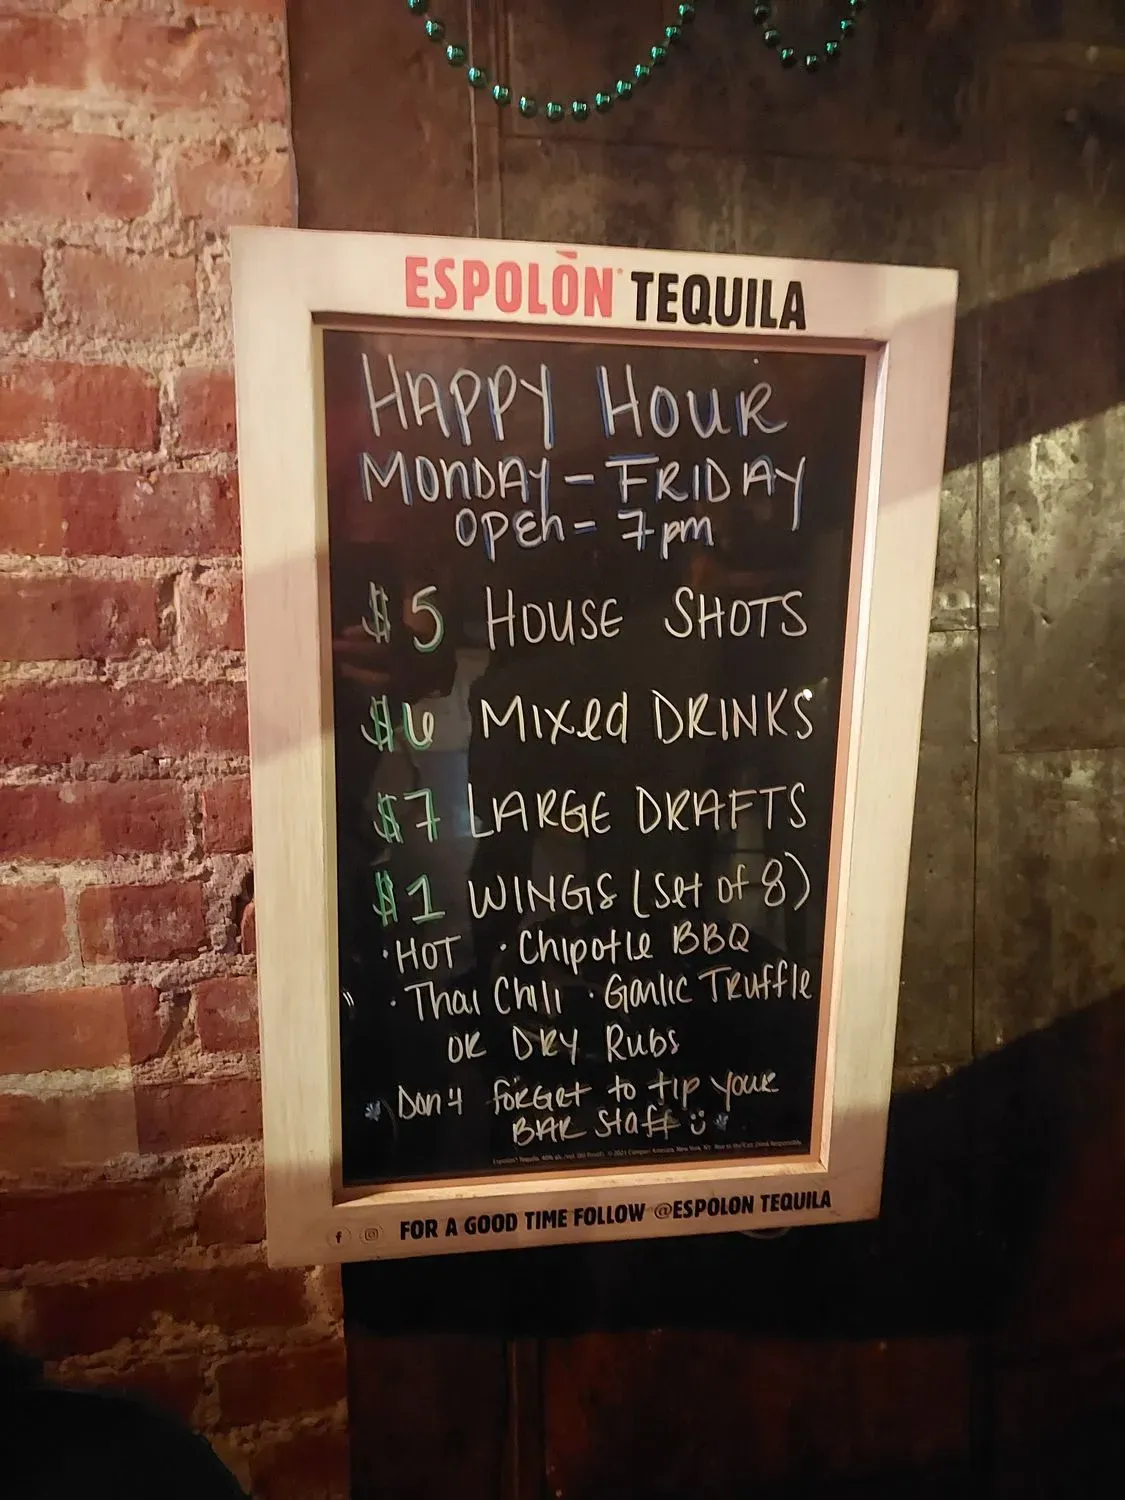 ESPOLÒN TEQUILA
HAPPY HOUR
MONDAY - FRIDAY
OPEN - 7pm
$5 HOUSE SHOTS
$6 Mixed DRINKS
$7 LARGE DRAFTS
$1 WINGS (Set of 8)
· HOT · Chipotle BBQ
· Thai Chili · Garlic Truffle
OR DRY Rubs
Don't forget to tip your
BAR Staff
FOR A GOOD TIME FOLLOW @ESPOLON TEQUILA